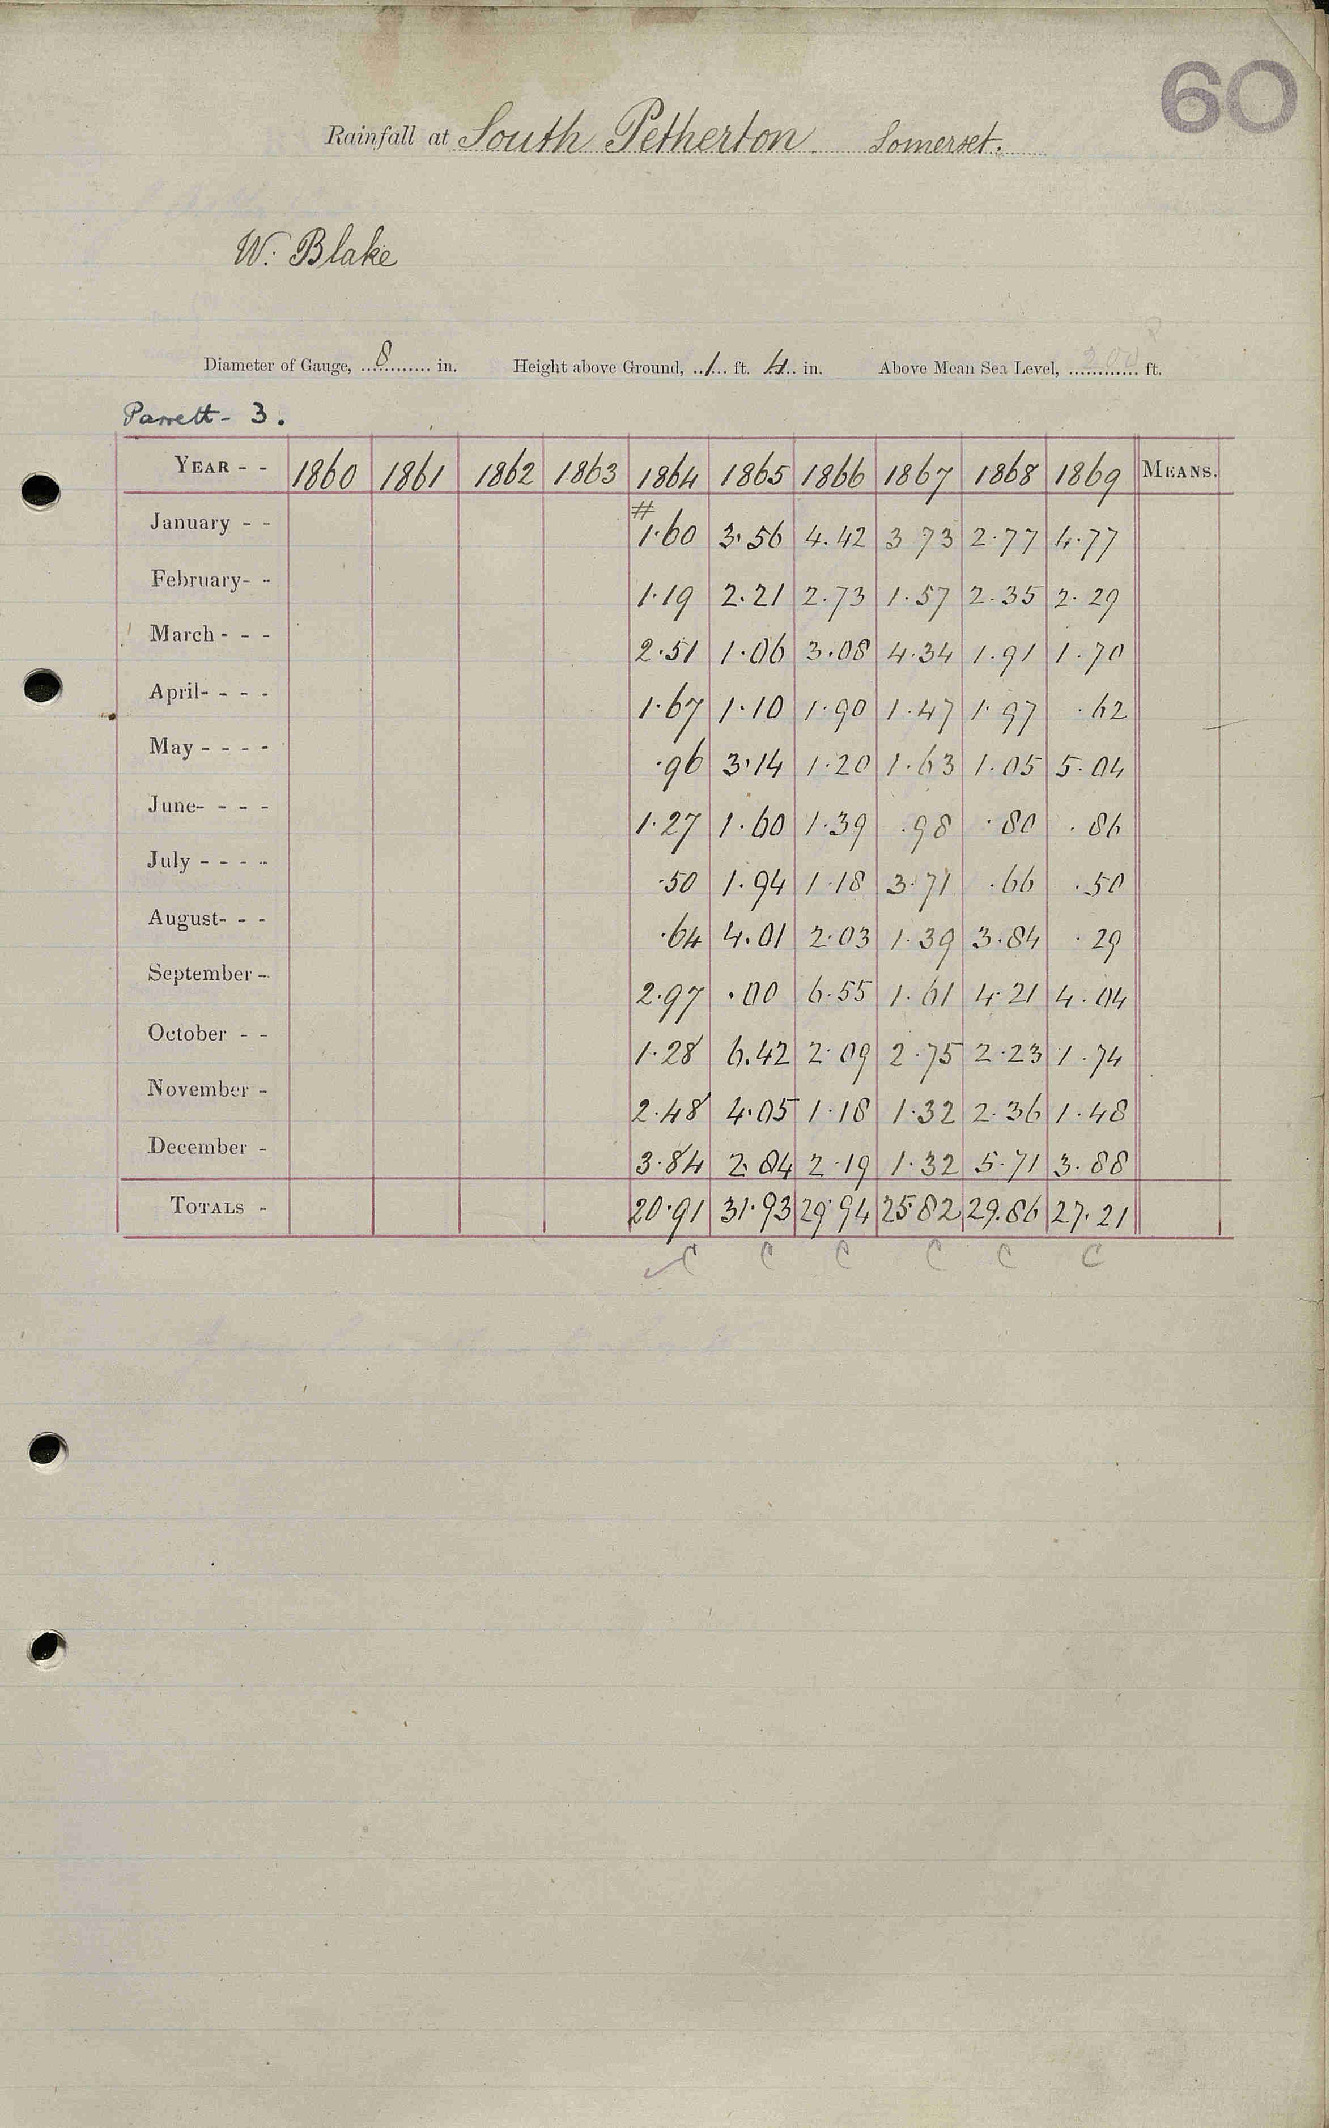 60
Rainfall at South Petherton. Somerset.
W. Blake
Diameter of Gauge, 8 in. Height above Ground, 1 ft. 4 in. Above Mean Sea Level, 200 ft.
Parrett - 3.
YEAR - - 1860 1861 1862 1863 1864 1865 1866 1867 1868 1869 MEANS.
#
January - - 1.60 3.56 4.42 3 73 2.77 4.77
February- - 1.19 2.21 2.73 1.57 2.35 2.29
March - - - 2.51 1.06 3.08 4.34 1.91 1.70
April- - - - 1.67 1.10 1.90 1.47 1.97 .62
May - - - - .96 3.14 1.20 1.63 1.05 5.04
June- - - - 1.27 1.60 1.39 .98 .80 .86
July - - - - .50 1.94 1.18 3.71 .66 .50
August- - - .64 4.01 2.03 1.39 3.84 .29
September - 2.97 .00 6.55 1.61 4.21 4.04
October - - 1.28 6.42 2.09 2.75 2.23 1.74
November - 2.48 4.05 1.18 1.32 2.36 1.48
December - 3.84 2.84 2.19 1.32 5.71 3.88
TOTALS - 20.91 31.93 29.94 25.82 29.86 27.21
C C C C C C